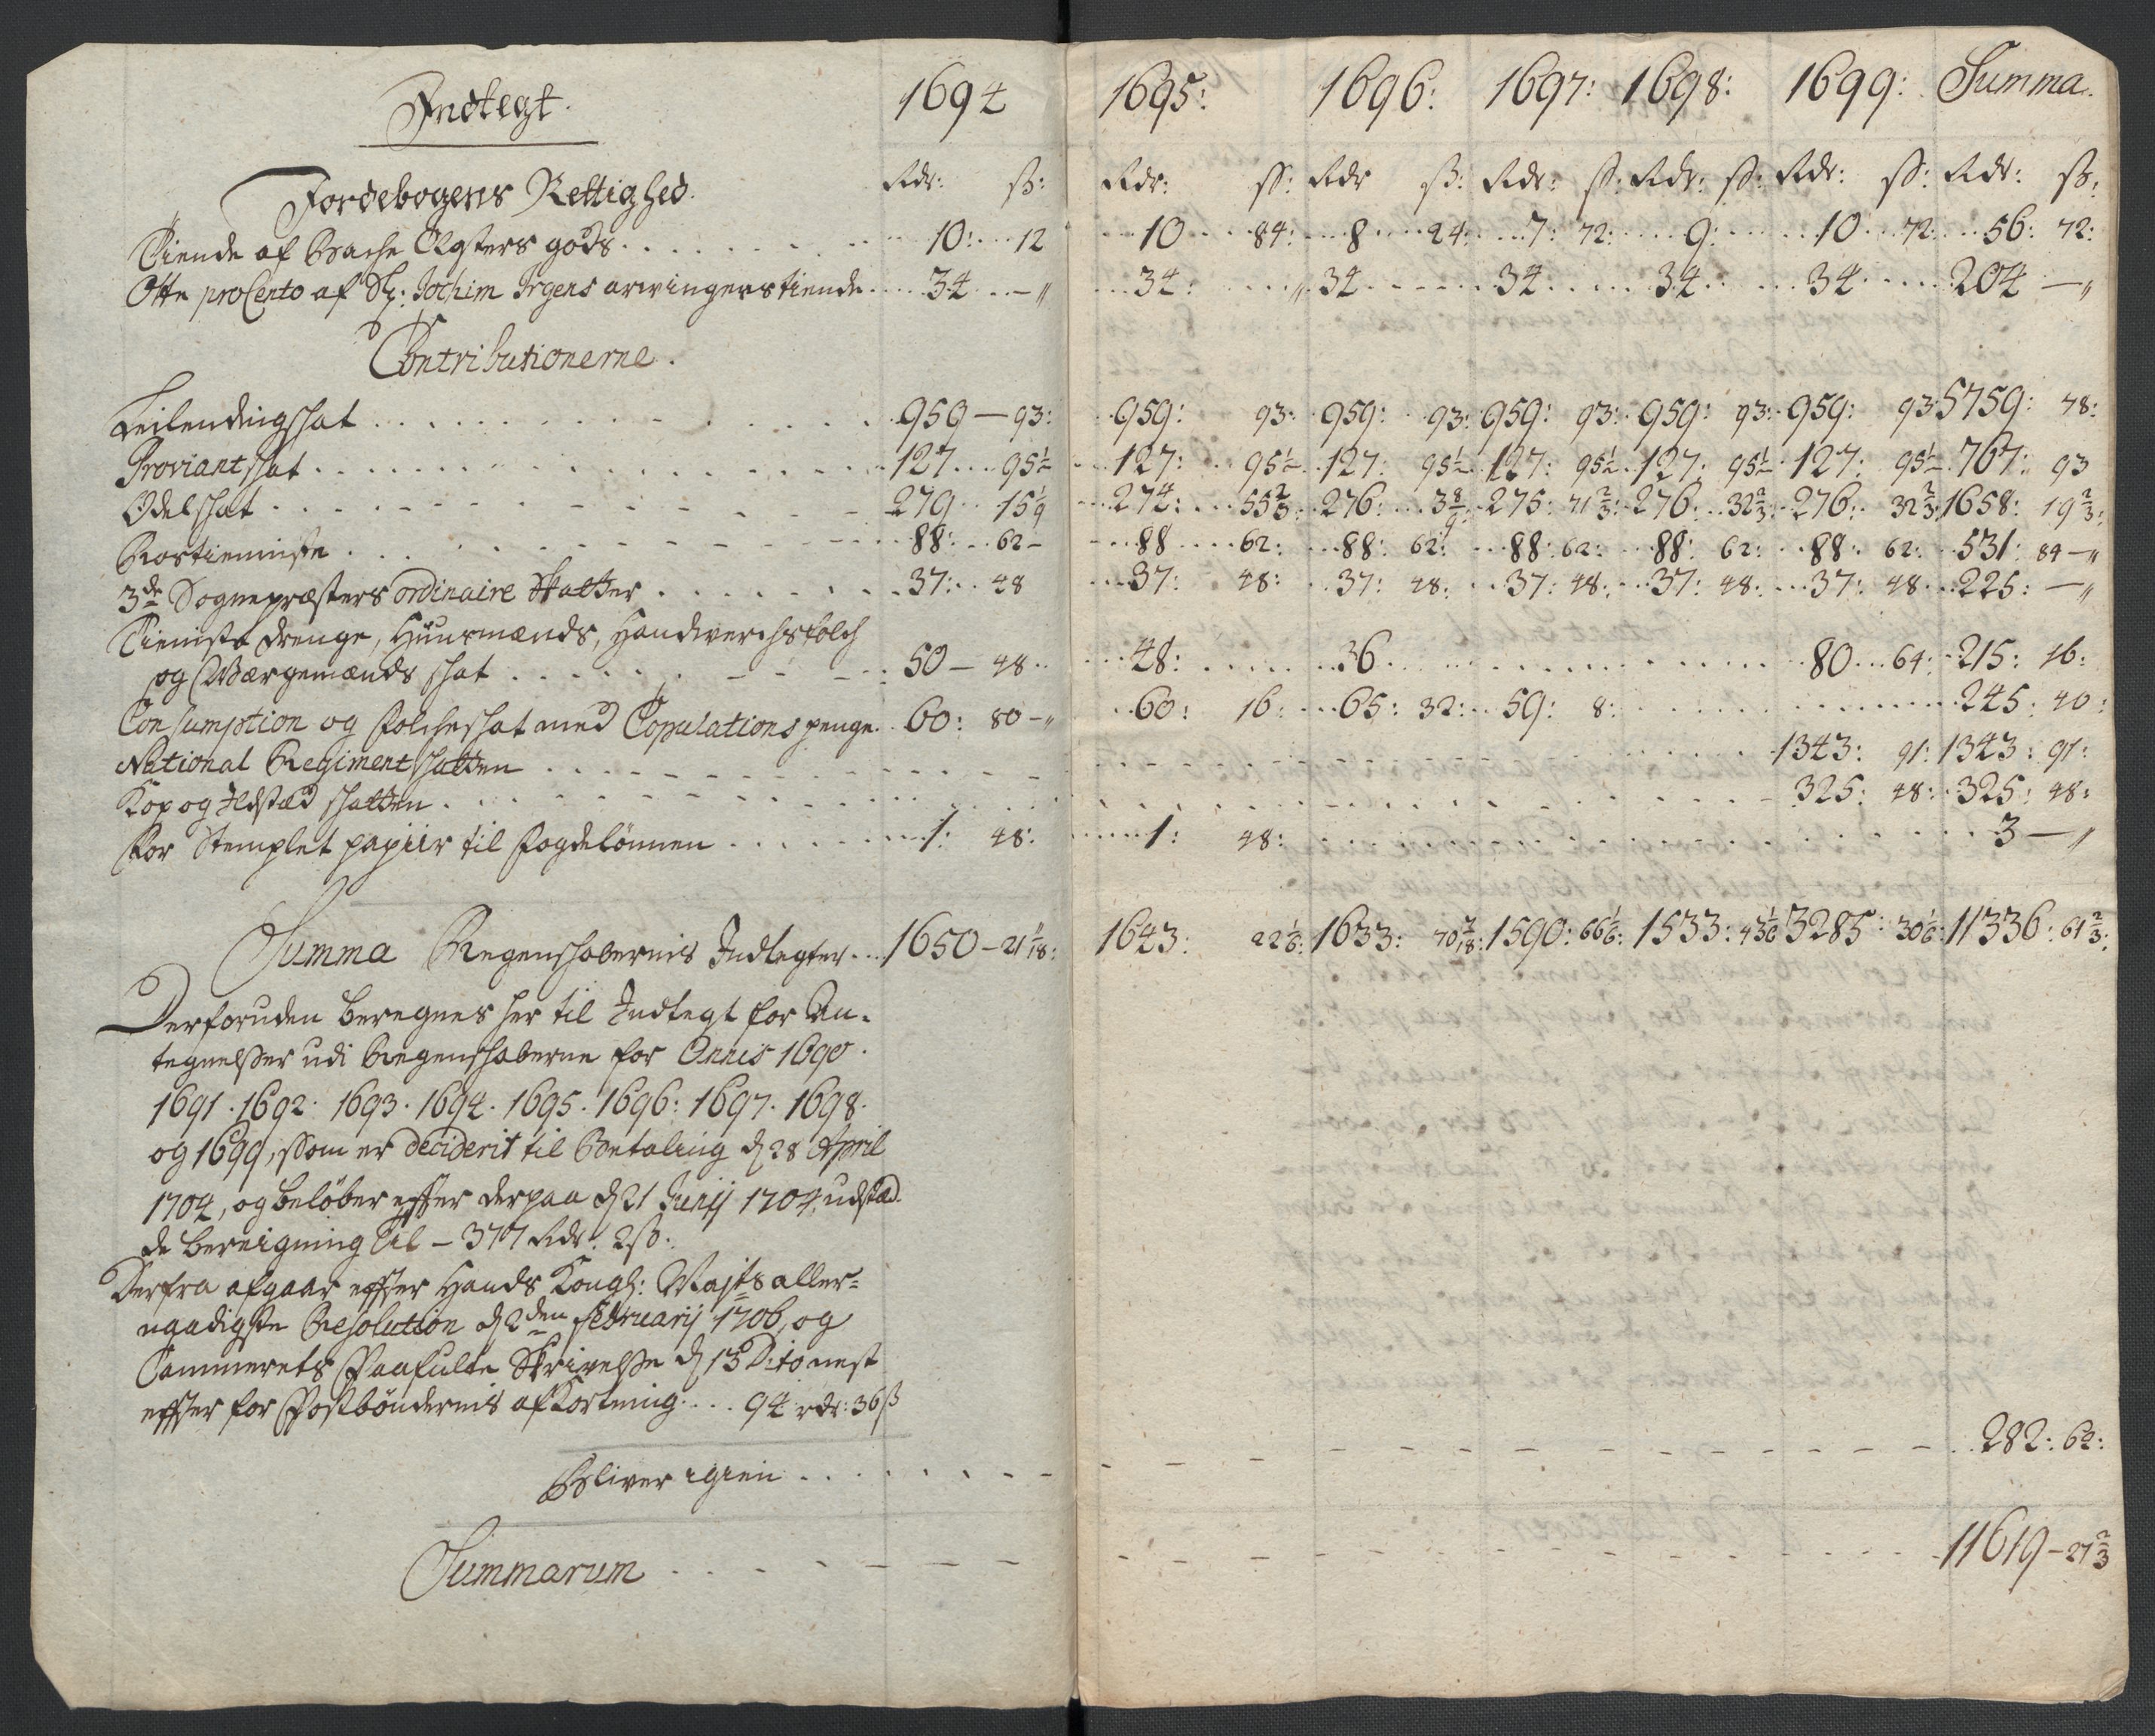 Indtegt. 1694 1695: 1696: 1697: 1698: 1699: Summa.
Jordebogens Rettighed. Rdr: ß: Rdr: ß: Rdr ß: Rdr: ß: Rdr: ß: Rdr: ß: Rdr: ß:
Tiende af Bache Closters gods 10: 12 10 84: 8 24: 7: 72: 9: 10 72: 56: 72:
Otte procento af Sl: Jochim Irgens arwingers tiende 34 — " 34: " 34 34 34 34 204 — "
Contributionerne.
Leilendingschat 959 — 93: 959: 93: 959: 93: 959: 93: 959: 93: 959: 93 5759: 78:
Proviantschat 127 95½ 127: 95½ 127: 95½ 127: 95½ 127: 95½ 127: 95½ 767: 93
Odelschat 279 15 1/9 274: 55 2/3: 276: 3 8/9: 275: 71 2/3: 276: 32 2/3: 276: 32 2/3: 1658: 19 2/3:
Rostieniste 88: 62 – 88 62: 88: 62: 88: 62: 88: 62: 88: 62: 531: 84 — "
3de Sognepræsters ordinaire Skatter 37: 48 37: 48: 37: 48: 37: 48: 37: 48: 37: 48 225: — "
Tieniste drenge, Huusmænds, Handwerchsfolch
og Værgemænds schat 50 — 48 48: 36 80 64: 215: 16:
Consumption og Folcheschat med Copulations penge 60: 80 – " 60: 16: 65: 32: 59: 8: 245: 40:
National Regimentschatten 1343: 91: 1343: 91:
Kop og Ildsted schatten 325: 48: 325: 48:
For Stemplet papiir til Fogdelönnen 1: 48: 1: 48: 3 — "
Summa Regenschabernis Indtegter 1650 – 21 1/18: 1643: 22 1/6: 1633: 70 7/18: 1590: 66 1/6: 1533: 43 1/6 3285: 30 1/6: 11336: 61 2/3:
Derforuden beregnes her til Indtegt for An-
tegnelsser udi Regenschaberne for Annis 1690.
1691. 1692. 1693. 1694. 1695. 1696: 1697. 1698.
og 1699, ssom er deciderit til Betaling d 28 April
1704, og belöber effter derpaa d 21 Junij 1704, udstæd
de bereigning til – 377 Rdr. 2ß:
Derfra afgaar effter Hands Kongl: Majts aller-
naadigste Resolution d 2den Februarij 1706, og
Cammerets Paafulte Skrivelsse d 13 Dito nest
effter for Postböndernis afKortning 94 rdr: 36ß
Bliver igien 282: 62:
Summarum 11619 – 27 2/3